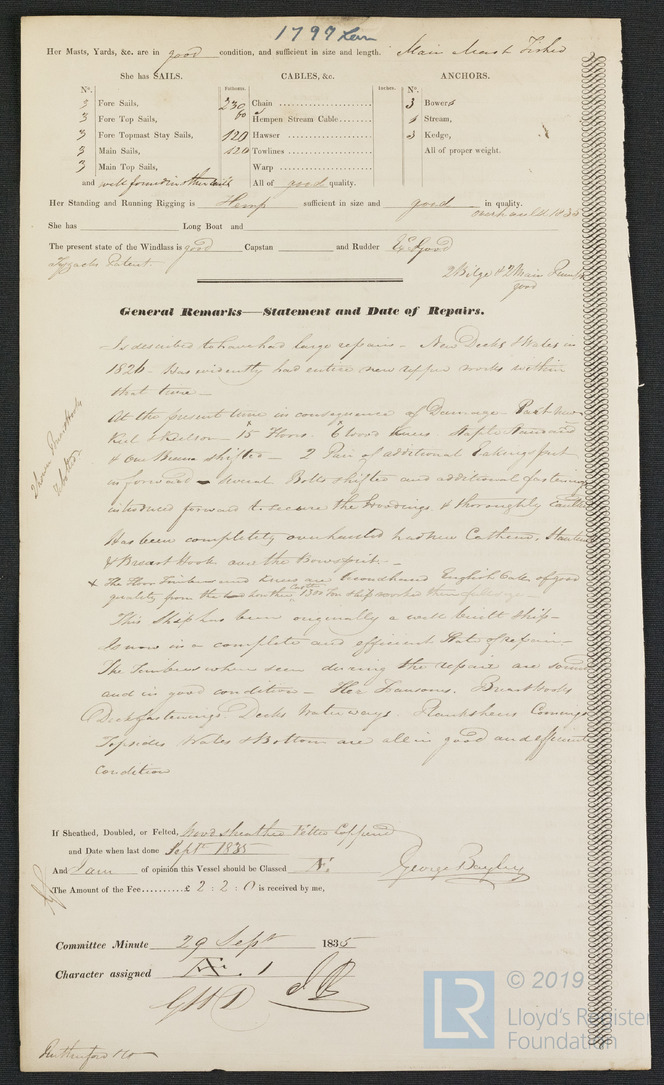 1797
Her Masts, Yards, &c. are in good condition, and sufficient in size and length. Main Mast Fished
She has SAILS. CABLES, &c. ANCHORS.
Nº. Fathoms. Inches. Nº.
3 Fore Sails, 230 Chain 3 Bowers
3 Fore Top Sails, 60 Hempen Stream Cable 1 Stream,
3 Fore Topmast Stay Sails, 120 Hawser 3 Kedge,
3 Main Sails, 120 Towlines All of proper weight.
3 Main Top Sails, Warp
and well found in other sails All of good quality.
Her Standing and Running Rigging is Hemp sufficient in size and good in quality.
overhauled 1835
She has Long Boat and
The present state of the Windlass is good Capstan and Rudder Good
Patent. 2 Bilge & 2 Main Pumps
good
General Remarks—Statement and Date of Repairs.
Is described to have had large repairs - New Decks & Wales in
1826 - Has evidently had entire new upper works within
that time -
At the present time in consequence of Damage Part new
Keel & Kelson - 15 Floors. 6 wood Knees Staple Standard
& One Beam shifted - 2 Pair of additional put
in forward - several Bolts shifted and additional fastenings
introduced forward to secure the & thoroughly
Has been completely overhauled had new Catheads,
& Breast Hook and the Bowsprit -
x The Floor Timbers and Knees are secondhand English Oak of good
quality from the 1300 Ton ship
This Ship has been originally a well built ship -
Is now in a complete and efficient State of repair -
The Timbers when seen during the repair are sound
and in good condition - Her Transoms. Breasthooks
Deck fastenings. Decks Waterways. Plansheers Comings
Topsides Wales & Bottom are all in good and efficient
Condition
If Sheathed, Doubled, or Felted, Wood sheathed Felted Coppered
and Date when last done Sept 1835
And I am of opinion this Vessel should be Classed
George Bayley
The Amount of the Fee..........£ 2 : 2 : 0 is received by me,
Committee Minute 29 Sept 1835
Character assigned 1
Rutherford & Co
LR
© 2019
Lloyd's Register
Foundation